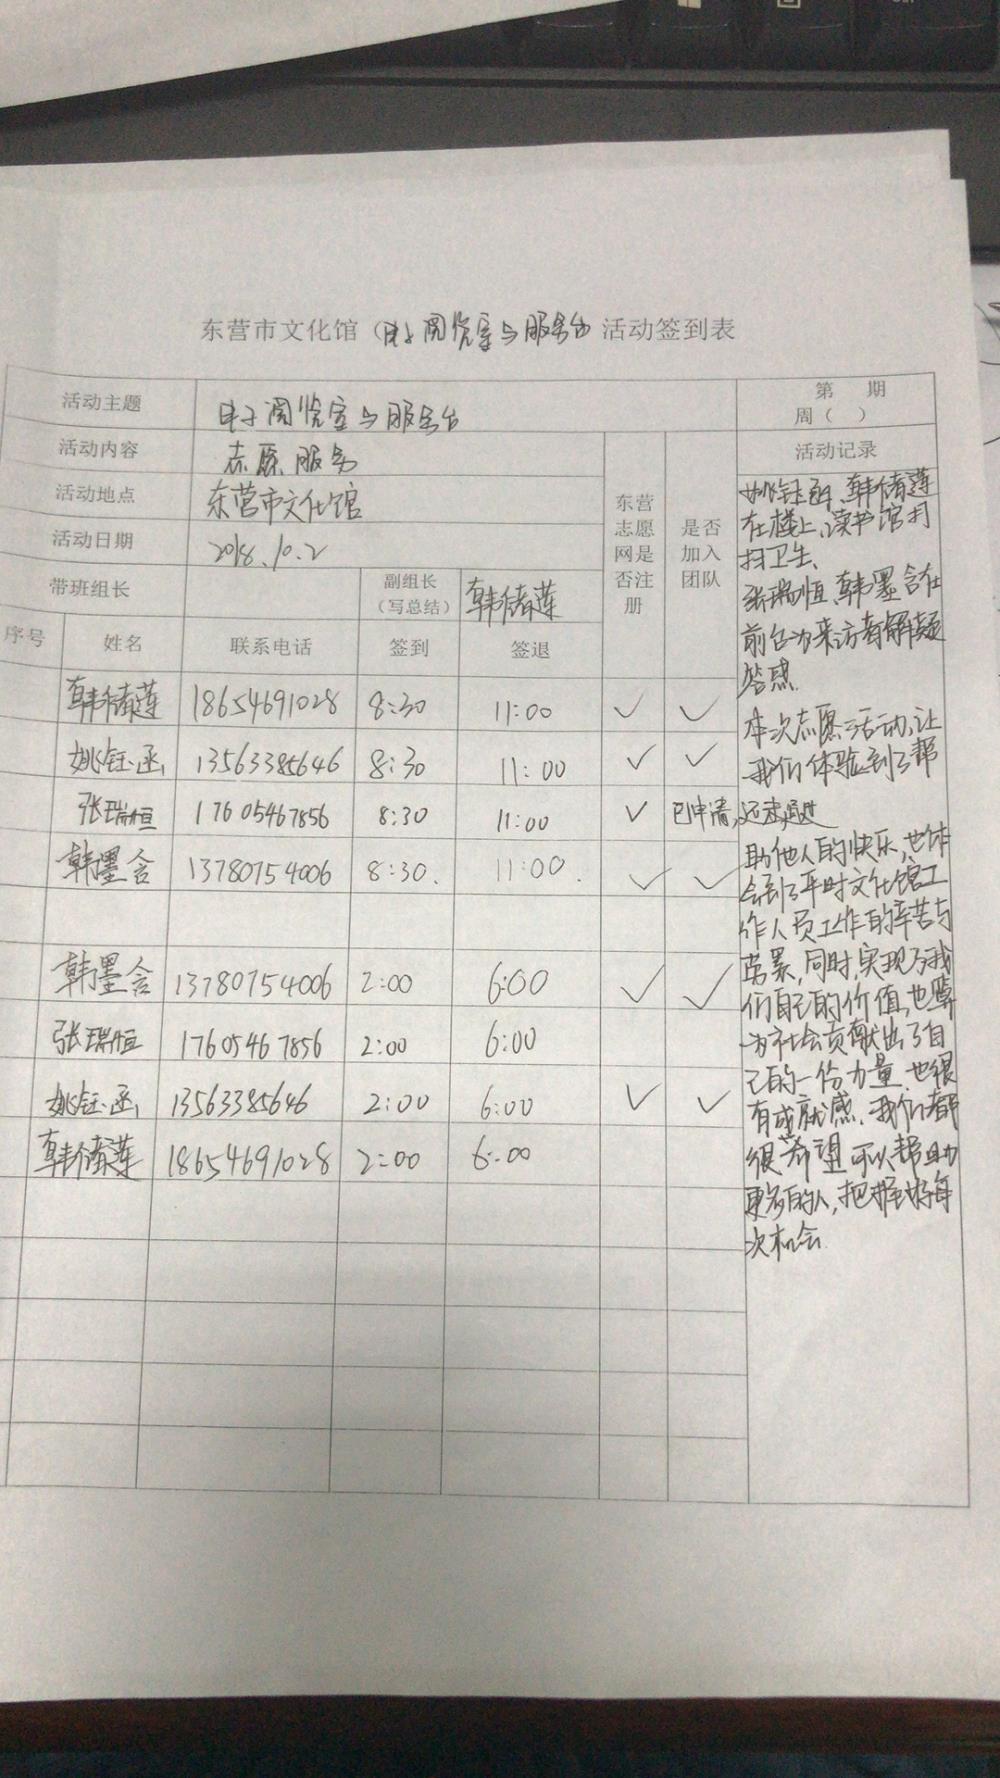 东营市文化馆（电子阅览室与服务台 活动签到表
活动主题 电子阅览室与服务台 第 期
周（ ）
活动内容 志愿服务 东营志愿网是否注册 是否加入团队 活动记录
活动地点 东营市文化馆
活动日期 2018.10.2
带班组长 副组长（写总结） 韩储莲
序号 姓名 联系电话 签到 签退
韩储莲 18654691028 8:30 11:00 ✓ ✓
姚钰函 13563385646 8:30 11:00 ✓ ✓
张瑞恒 17605467856 8:30 11:00 ✓ 已申请,还未通过
韩墨含 13780754006 8:30. 11:00. ✓ ✓
韩墨含 13780754006 2:00 6:00 ✓ ✓
张瑞恒 17605467856 2:00 6:00
姚钰函 13563385646 2:00 6:00 ✓ ✓
韩储莲 18654691028 2:00 6:00
姚钰函、韩储莲
在楼上、读书馆打
扫卫生、
张瑞恒、韩墨含在
前台为来访者解疑
答惑.
本次志愿活动,让
我们体验到了帮
助他人的快乐,也体
会到了平时文化馆工
作人员工作的辛苦与
劳累,同时,实现了我
们自己的价值,也
为社会贡献出了自
己的一份力量,也很
有成就感.我们都
很希望可以帮助
更多的人,把握好每
次机会.